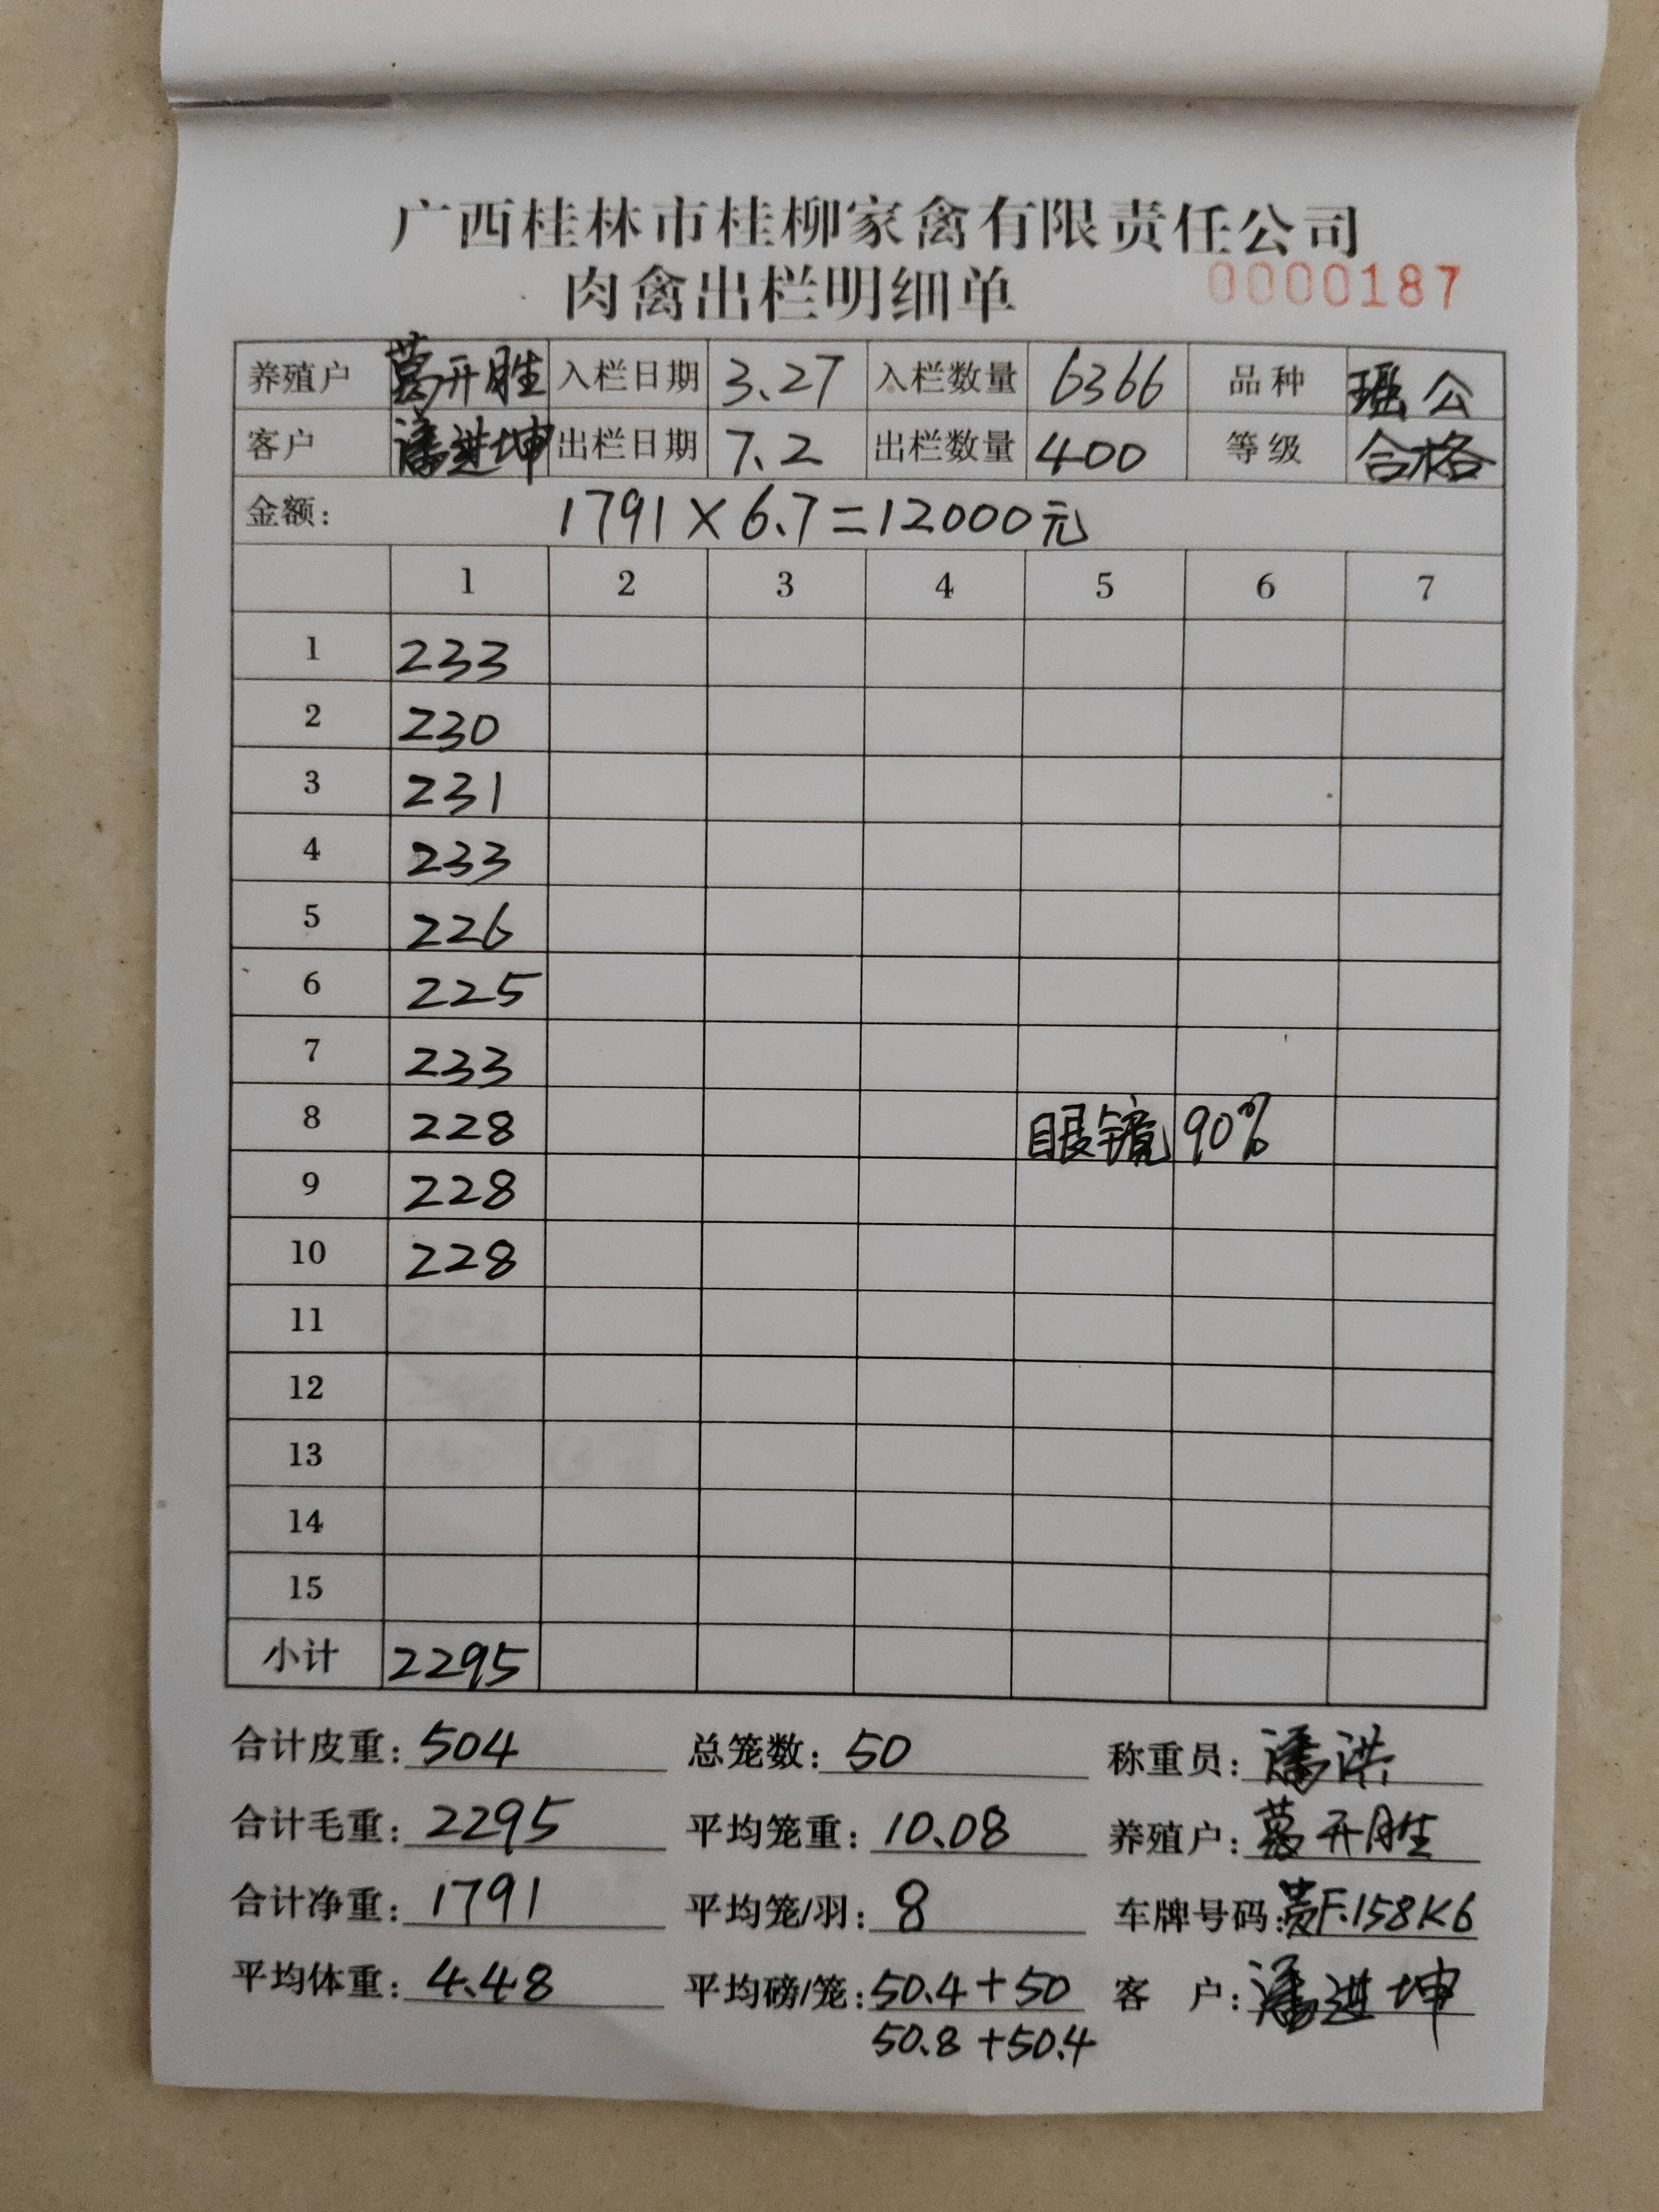 广西桂林市桂柳家禽有限责任公司
肉禽出栏明细单 0000187
养殖户 葛开胜 入栏日期 3.27 入栏数量 6366 品种 瑶公
客户 潘进坤 出栏日期 7.2 出栏数量 400 等级 合格
金额: 1791×6.7=12000元
1 2 3 4 5 6 7
1 233
2 230
3 231
4 233
5 226
6 225
7 233
8 228 眼镜 90%
9 228
10 228
11
12
13
14
15
小计 2295
合计皮重: 504 总笼数: 50 称重员: 潘洪
合计毛重: 2295 平均笼重: 10.08 养殖户: 葛开胜
合计净重: 1791 平均笼/羽: 8 车牌号码: F.158K6
平均体重: 4.48 平均磅/笼: 50.4+50 客 户: 潘进坤
50.8+50.4